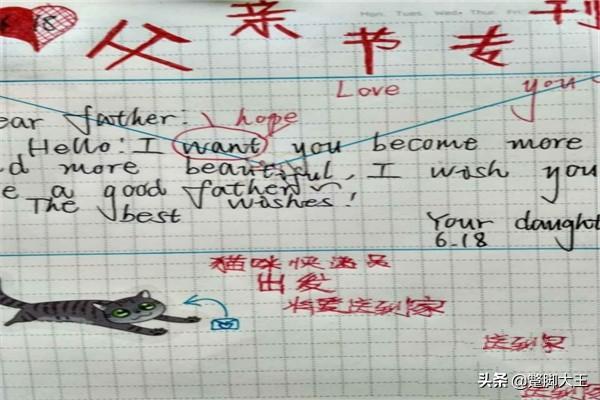 18
父亲节专刊
Mon. Tues. Wed. Thur. Fri.
Love you
ear father: hope
Hello: I want you become more
d more beautiful, I wish you
e a good father~
The best wishes!
Your daught
6.18
猫咪快递员
出发
将爱送到家
送到家
送到家
头条 @蹩脚大王